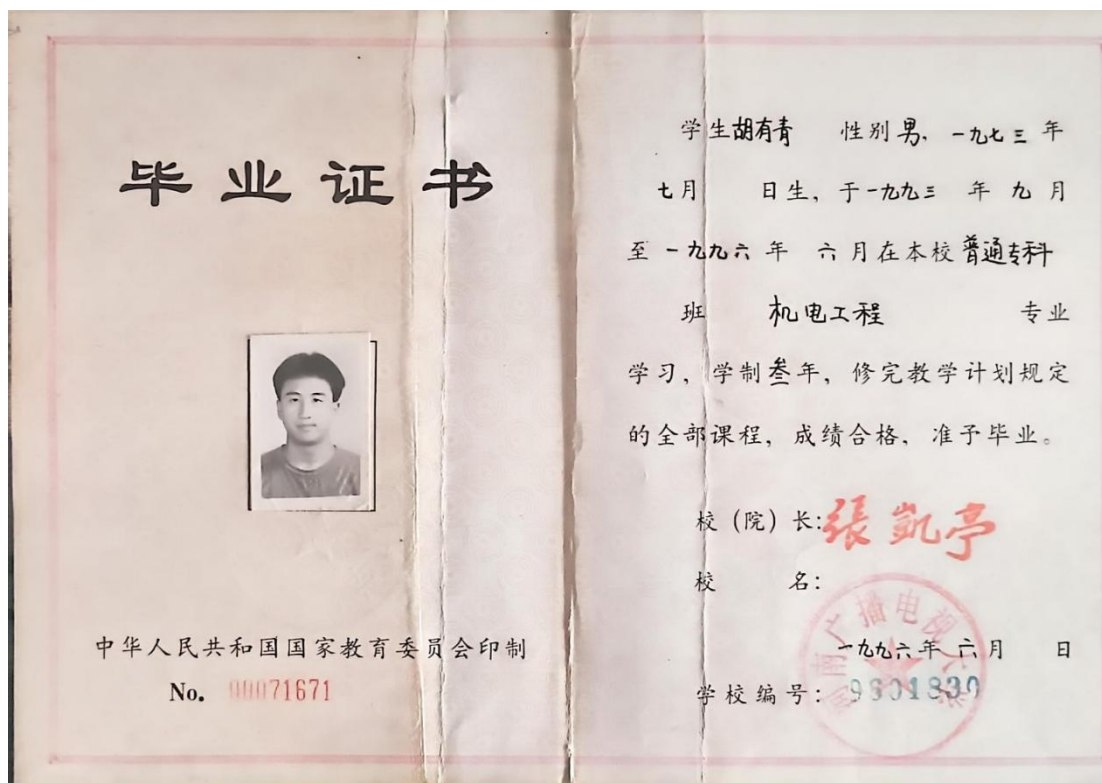 毕业证书
中华人民共和国国家教育委员会印制
No. 00071671
学生胡有青 性别男，一九七三年
七月 日生，于一九九三 年 九 月
至 一九九六 年 六月在本校普通专科
班 机电工程 专业
学习，学制叁年，修完教学计划规定
的全部课程，成绩合格，准予毕业。
校（院）长：張凱亭
校 名：
一九九六年 六月 日
学校编号：9601830